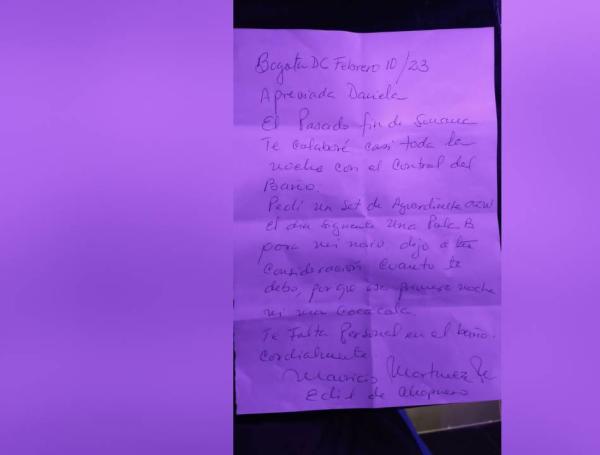 Bogota DC Febrero 10/23
Apreciada Daniela
El Pasado fin de Semana
Te Colaboré casi toda la
noche con el Control del
Baño.
Pedi un Set de Aguardiente
el dia siguiente una Pola
para mi novio, dejo a tu
Consideración Cuanto te
debo, porque esa primera noche
ni una Coca cola.
Te falta Personal en el baño.
Cordialmente
Mauricio Martinez
Edil de